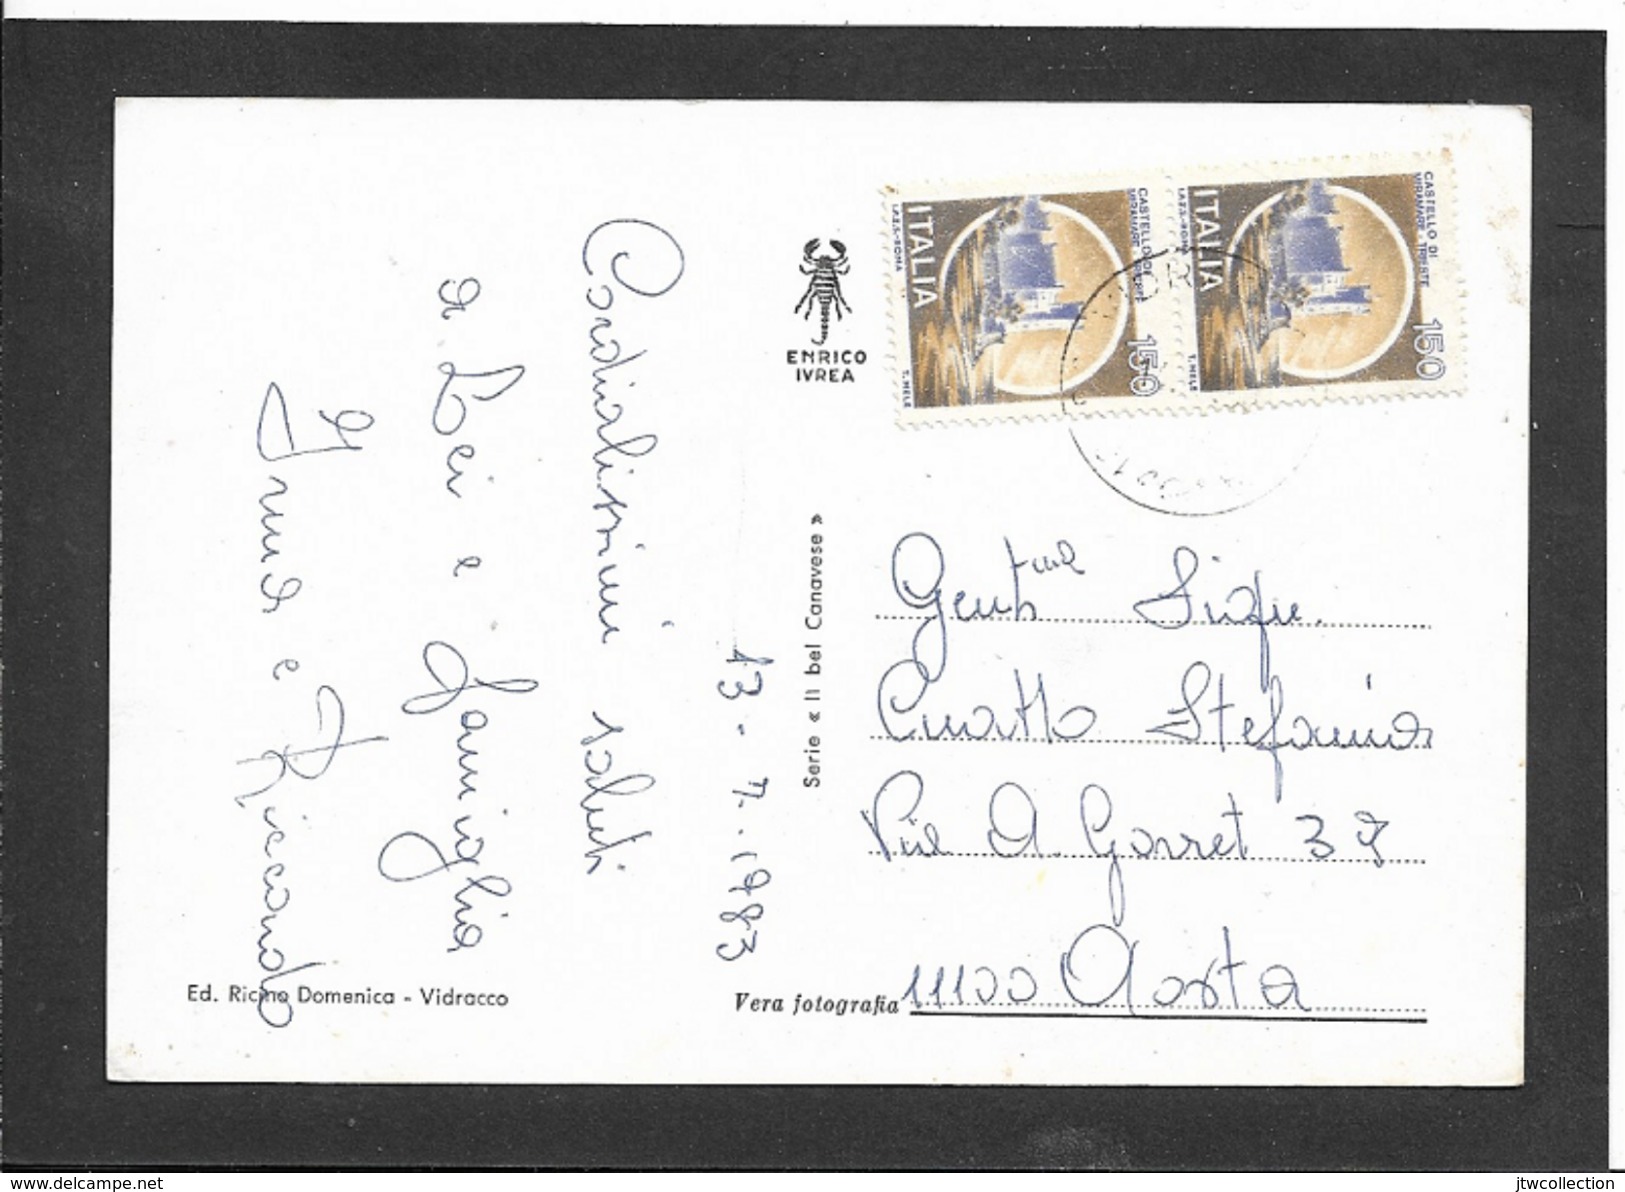 CASTELLO DI
MIRAMARE - TRIESTE
150
ITALIA
I.P.Z.S.-ROMA
T. MELE
CASTELLO DI
MIRAMARE - TRIESTE
150
ITALIA
I.P.Z.S.-ROMA
T. MELE
ENRICO
IVREA
Serie « Il bel Canavese »
13 - 7 - 1983
Cordialissimi saluti
a Lei e famiglia
e Riccardo
Gent.ma Sig.na
Curatto Stefania
V.le A. Gorret 37
11100 Aosta
Ed. Ricino Domenica - Vidracco
Vera fotografia
www.delcampe.net
jtwcollection